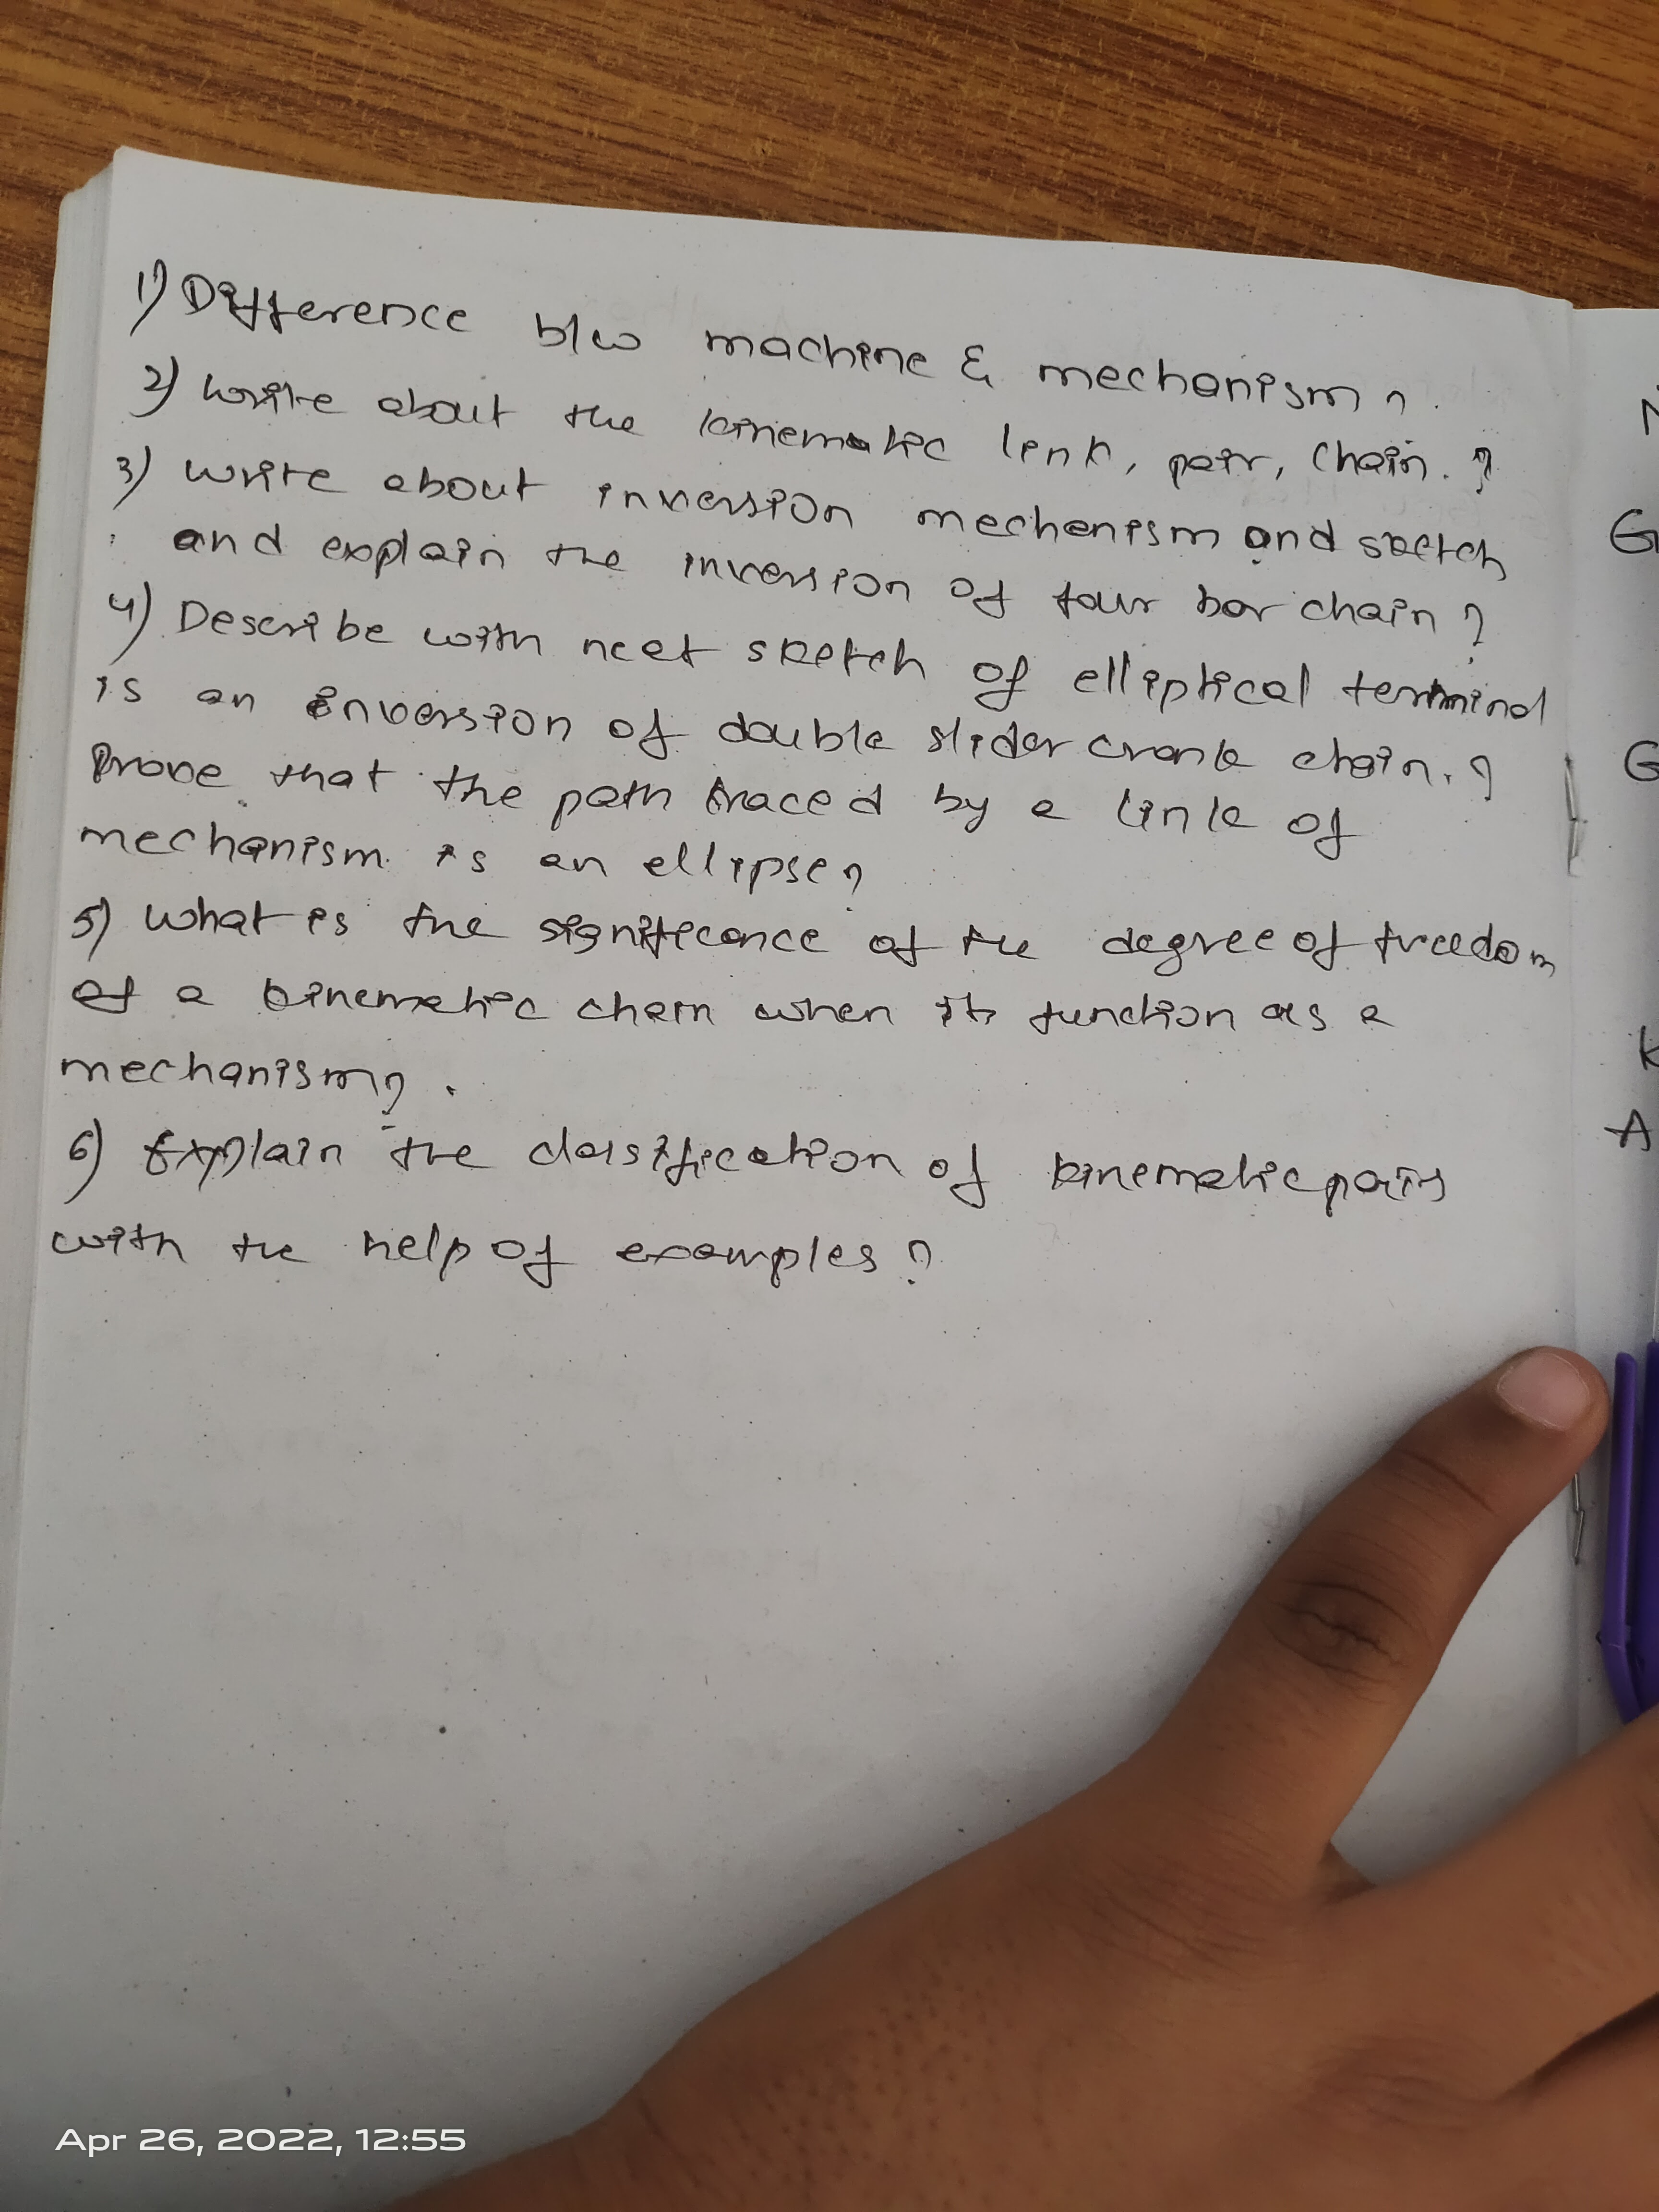 1) Difference b/w machine & mechanism ?
2) write about the kinematic link, pair, chain. ?
3) write about inversion mechenism and sketch
and explain the inversion of four bar chain ?
4) Describe with neet sketch of elliptical terminal
is an inversion of double slider crank chain. ?
Prove that the path traced by a link of
mechanism is an ellipse ?
5) what is the significance of the degree of freedom
of a kinematic chain when it function as a
mechanism ? .
6) Explain the classification of kinematic pairs
with the help of examples ?
G
G
K
A
Apr 26, 2022, 12:55